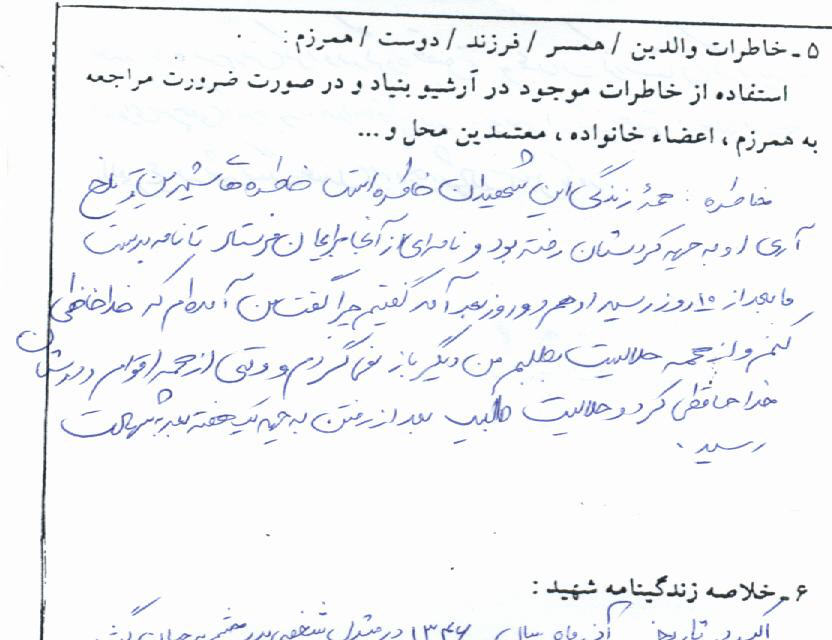 ۵ ـ خاطرات والدین / همسر / فرزند / دوست / همرزم :
استفاده از خاطرات موجود در آرشیو بنیاد و در صورت ضرورت مراجعه
به همرزم ، اعضاء خانواده ، معتمدین محل و ...
خاطره : همۀ زندگی این شهیدان خاطره است خاطره های شیرین و تلخ
آری او به جبهه کردستان رفته بود و نامه ای از آنجا برایمان فرستاد تا نامه بدست
ما بعد از ۱۵ روز رسید او هم دو روز بعد آمد گفتیم چرا گفت من آمده ام که خداحافظی
کنم و از همه حلالیت بطلبم من دیگر باز نمی گردم و وقتی از همه اقوام و دوستان
خداحافظی کرد و حلالیت طلبید بعد از رفتن به جبهه یک هفته بعد به شهادت
رسید .
۶ ـ خلاصه زندگینامه شهید :
آذر ماه سال ۱۳۴۶ در